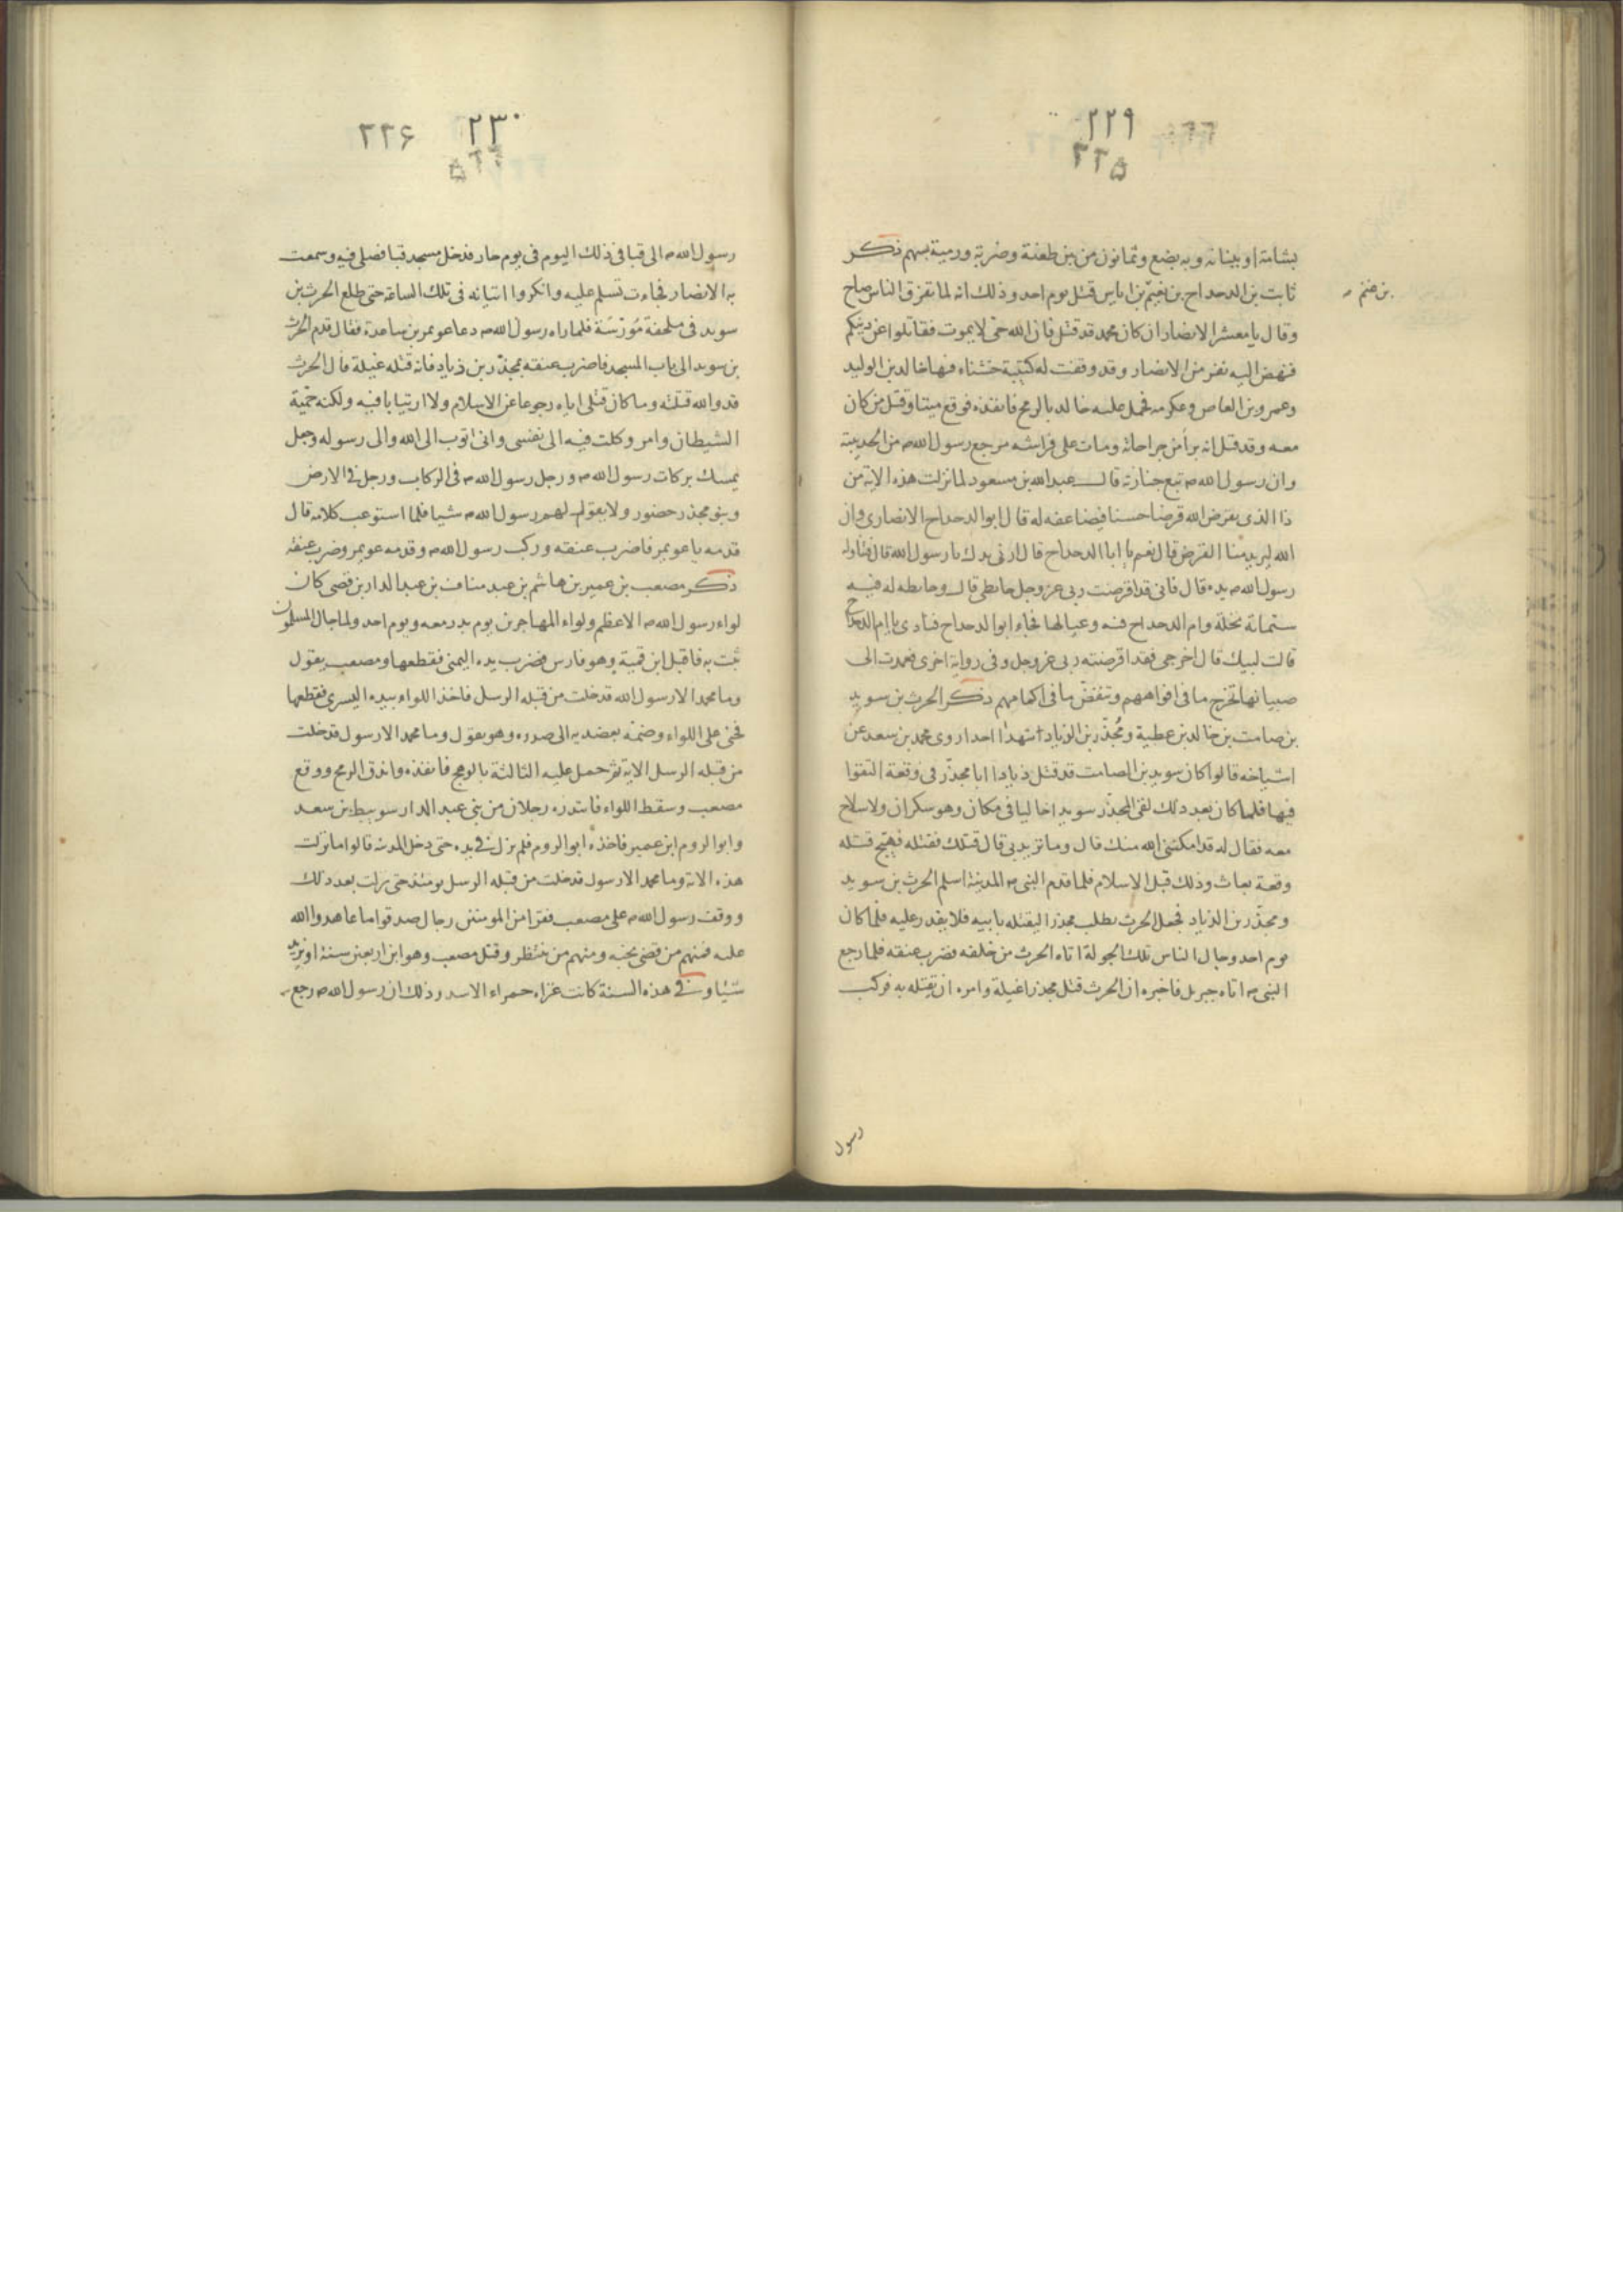 ٢٢٩
٢٢۵
بشامة او بينانه وبه بضع وثمانون من بين طعنة وضربة ورمية بسهم ذكر
ثابت بن الدحداح بن نعيم بن اياس قتل يوم احد وذلك انه لما تفرق الناس صاح
بن غنم
وقال يا معشر الانصار ان كان محمد قد قتل فان الله حي لا يموت فقاتلوا عن دينكم
فنهض اليه نفر من الانصار وقد وقفت له كتيبة خشناء فيها خالد بن الوليد
وعمرو بن العاص وعكرمه فحمل عليه خالد بالرمح فانفذه فوقع ميتا وقتل من كان
معه وقد قيل انه برأ من جراحاته ومات على فراشه مرجع رسول الله ص من الحديبية
وان رسول الله ص تبع جنازته قال عبد الله بن مسعود لما نزلت هذه الاية من
ذا الذي يقرض الله قرضا حسنا فيضاعفه له قال ابو الدحداح الانصاري وان
الله ليريد منا القرض قال نعم يا ابا الدحداح قال ارني يدك يا رسول الله قال فناوله
رسول الله ص يده قال فاني قد اقرضت ربي عز وجل حايطي قال وحايطه له فيه
ستمائة نخلة وام الدحداح فيه وعيالها فجاء ابو الدحداح فنادى يا ام الدحداح
قالت لبيك قال اخرجي فقد اقرضته ربي عز وجل وفي رواية اخرى فعمدت الى
صبيانها تخرج ما في افواههم وتنفض ما في اكمامهم ذكر الحرث بن سويد
بن صامت بن خالد بن عطية ومُجذّر بن الذياد استهدا احدا روى محمد بن سعد عن
اشياخه قالوا كان سويد بن الصامت قد قتل ذيادا ابا مجذّر في وقعة التقوا
فيها فلما كان بعد ذلك لقي المجذّر سويدا خاليا في مكان وهو سكران ولا سلاح
معه فقال له قد امكنني الله منك قال وما تريد بي قال قتلك فقتله فهيّج قتله
وقعة بعاث وذلك قبل الاسلام فلما قدم النبي ص المدينة اسلم الحرث بن سويد
ومجذّر بن الذياد فجعل الحرث يطلب مجذرا ليقتله بابيه فلا يقدر عليه فلما كان
يوم احد وجال الناس تلك الجولة اتاه الحرث من خلفه فضرب عنقه فلما رجع
النبي ص اتاه جبريل فاخبره ان الحرث قتل مجذرا غيلة وامره ان يقتله به فركب
رسول
٢٣٠
٢٢۶
رسول الله ص الى قبا في ذلك اليوم في يوم حار فدخل مسجد قبا فصلى فيه وسمعت
به الانصار فجاءت تسلم عليه وانكروا اتيانه في تلك الساعة حتى طلع الحرث بن
سويد في ملحفة مُورّسَة فلما راه رسول الله ص دعا عويمر بن ساعدة فقال قدم الحرث
بن سويد الى باب المسجد فاضرب عنقه بمجذّر بن ذياد فانه قتله غيلة قال الحرث
قد والله قتلته وما كان قتلي اياه رجوعا عن الاسلام ولا ارتيابا فيه ولكنه حميّة
الشيطان وامر وكلت فيه الى نفسي واني اتوب الى الله والى رسوله وجعل
يمسك بركات رسول الله ص ورجل رسول الله ص في الركاب ورجل في الارض
وبنو مجذر حضور ولا يقول لهم رسول الله ص شيا فلما استوعب كلامه قال
قدمه يا عويمر فاضرب عنقه وركب رسول الله ص وقدمه عويمر وضرب عنقه
ذكر مصعب بن عمير بن هاشم بن عبد مناف بن عبد الدار بن قصي كان
لواء رسول الله ص الاعظم ولواء المهاجرين يوم بدر معه ويوم احد ولما جال المسلمون
ثبت به فاقبل ابن قمية وهو فارس فضرب يده اليمنى فقطعها ومصعب يقول
وما محمد الا رسول الله قد خلت من قبله الرسل فاخذ اللواء بيده اليسرى فقطعها
فحنى على اللواء وضمّه بعضديه الى صدره وهو يقول وما محمد الا رسول قد خلت
من قبله الرسل الاية ثم حمل عليه الثالثة بالرمح فانفذه واندق الرمح ووقع
مصعب وسقط اللواء فابتدره رجلان من بني عبد الدار سويبط بن سعد
وابو الروم ابن عمير فاخذه ابو الروم فلم يزل في يده حتى دخل المدينة قالوا ما نزلت
هذه الاية وما محمد الا رسول قد خلت من قبله الرسل يومئذ حتى نزلت بعد ذلك
ووقف رسول الله ص على مصعب فقرا من المومنين رجال صدقوا ما عاهدوا الله
عليه فمنهم من قضى نحبه ومنهم من ينتظر وقتل مصعب وهو ابن اربعين سنة او يزيد
شيئا وفي هذه السنة كانت غزاه حمراء الاسد وذلك ان رسول الله ص رجع